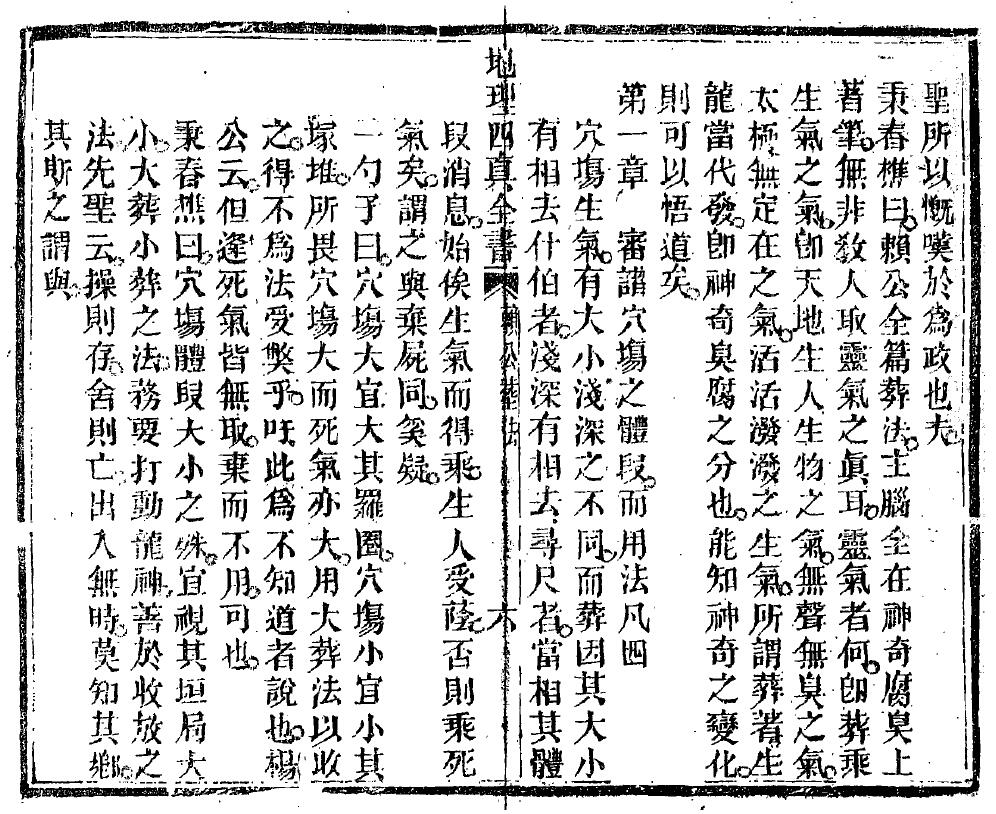 聖所以慨嘆於爲政也夫
秉春樵曰賴公全篇葬法主腦全在神奇腐臭上
著筆無非教人取靈氣之眞耳靈氣者何卽葬乘
生氣之氣卽天地生人生物之氣無聲無臭之氣
太極無定在之氣活活潑潑之生氣所謂葬著生
龍當代發卽神奇臭腐之分也能知神奇之變化
則可以悟道矣
第一章　審諸穴塲之體段而用法凡四
穴塲生氣有大小淺深之不同而葬因其大小
有相去什伯者淺深有相去尋尺者當相其體
地理四真全書　賴公葬法　六
段消息始俟生氣而得乘生人受蔭否則乘死
氣矣謂之與棄屍同奚疑
一勺子曰穴塲大宜大其羅圈穴塲小宜小其
塚堆所畏穴塲大而死氣亦大用大葬法以收
之得不爲法受獘乎吁此爲不知道者說也楊
公云但逢死氣皆無取棄而不用可也
秉春樵曰穴塲體段大小之殊宜視其垣局大
小大葬小葬之法務要打動龍神善於收放之
法先聖云操則存舍則亡出入無時莫知其鄉
其斯之謂與